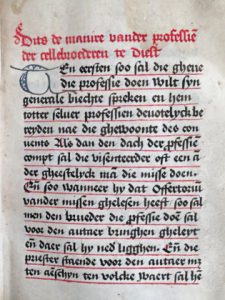 Dits de maniere vander professiẽ
der cellebroederen te Diest
En eersten soo sal die ghene
die professie doen wilt syn
generale biechte spreken en hem
totter seluer professien deuotelyck be
reyden nae die ghewoonte des con
uents Als dan den dach der pfessiẽ
compt sal die visenteerder oft een ã
der gheestelyck mã die misse doen.
Eñ soo wanneer hy dat Offertoriũ
vander missen ghelesen heeft soo sal
men den brueder die pfessie doẽ sal
voor den autaer bringhen gheleyt
eñ daer sal hy ned ligghen. Eñ die
priester staende voor den autaer mz
ten aeschyn ten volcke waert sal hẽ